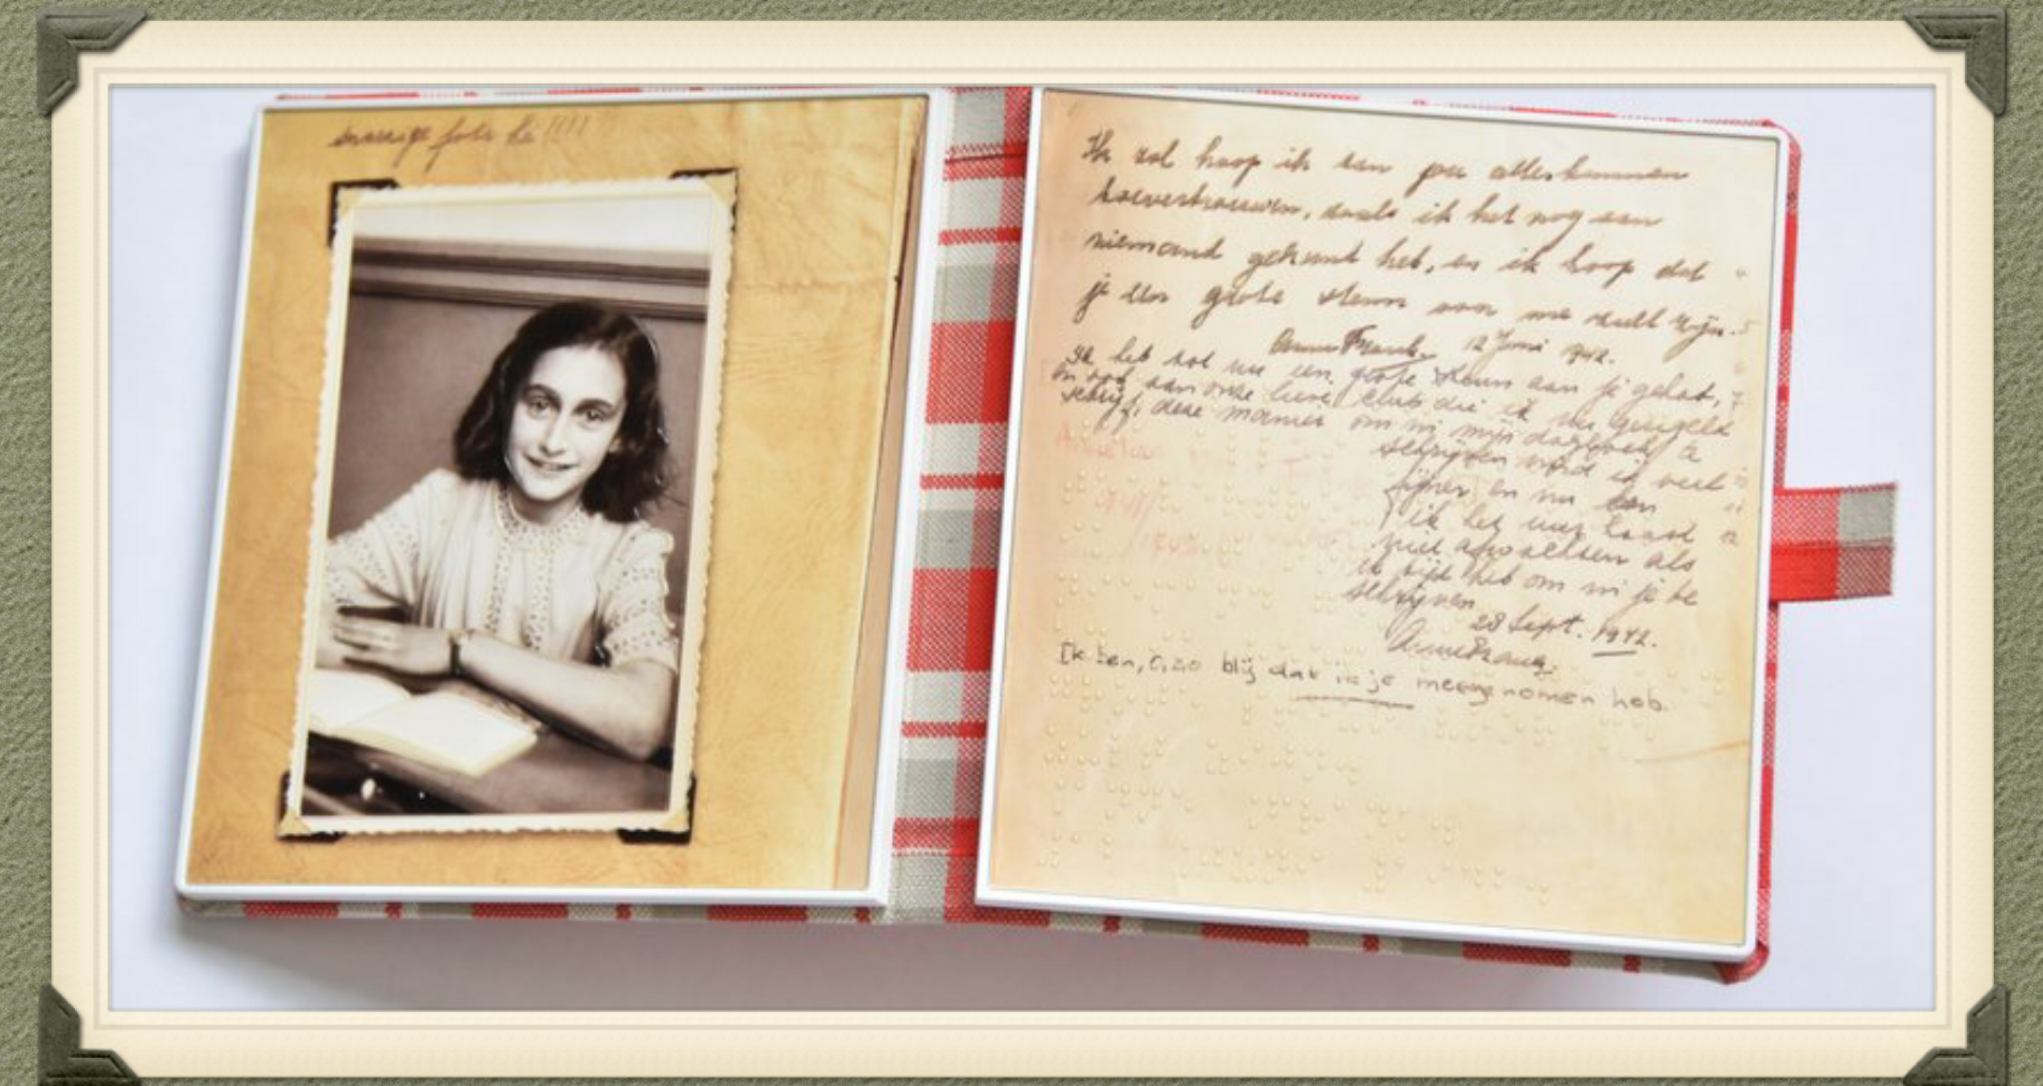 foto
Ik zal hoop ik aan jou alles kunnen
toevertrouwen, zoals ik het nog aan
niemand gekund heb, en ik hoop dat
je een grote steun voor me zult zijn.
Anne Frank. 12 Juni 1942.
Ik heb tot nu een grote steun aan je gehad,
en ook aan onze lieve club die ik nu geregeld
schrijf, deze manier om in mijn dagboek te
schrijven vind ik veel
fijner en nu kan
ik het uur haast
niet afwachten als
ik tijd heb om in je te
schrijven
28 Sept. 1942.
Anne Frank.
Ik ben, o, zo blij dat ik je meegenomen heb.